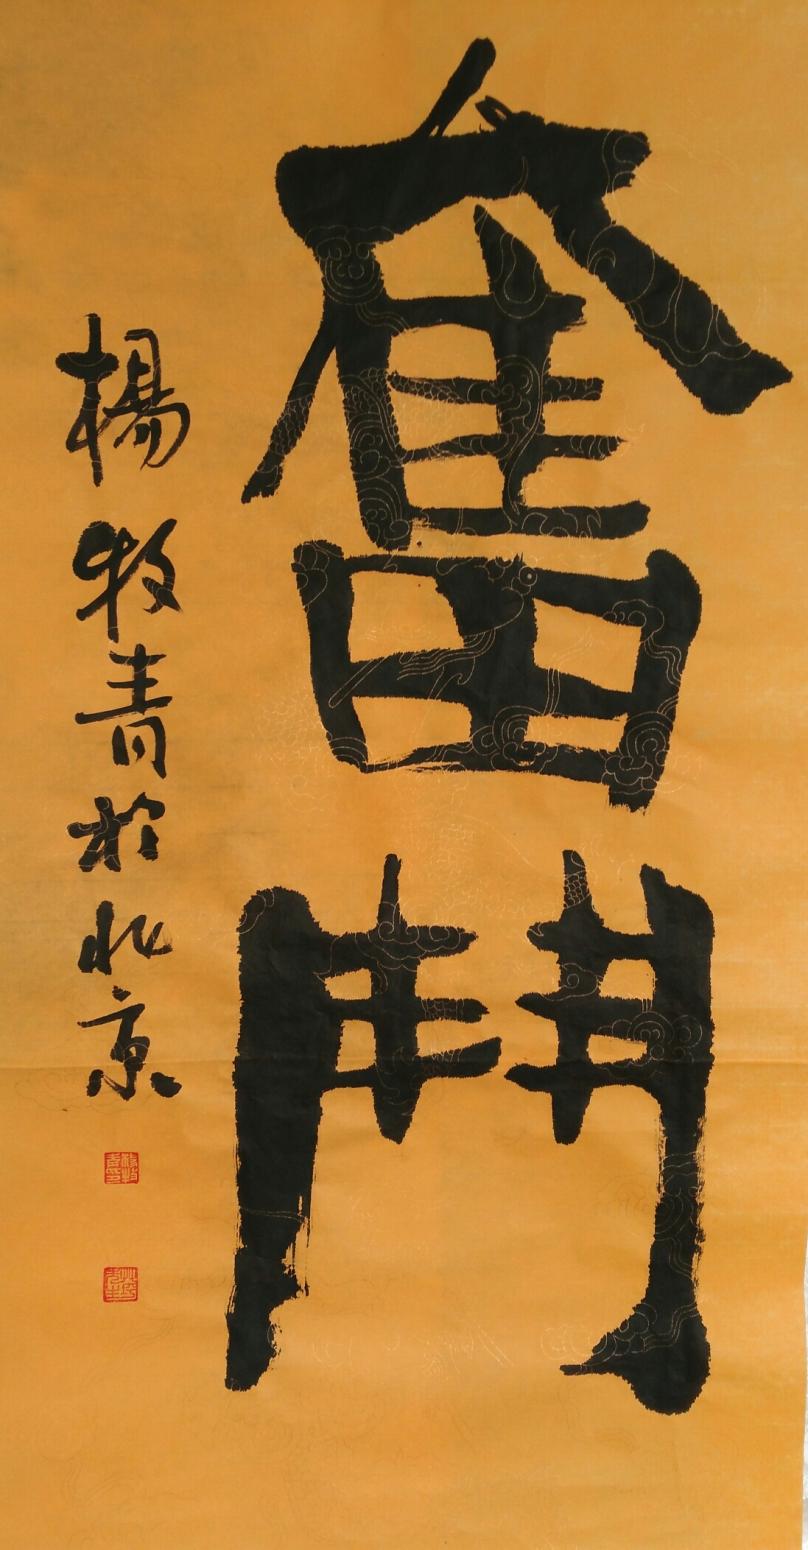 奮鬥
楊牧青於北京